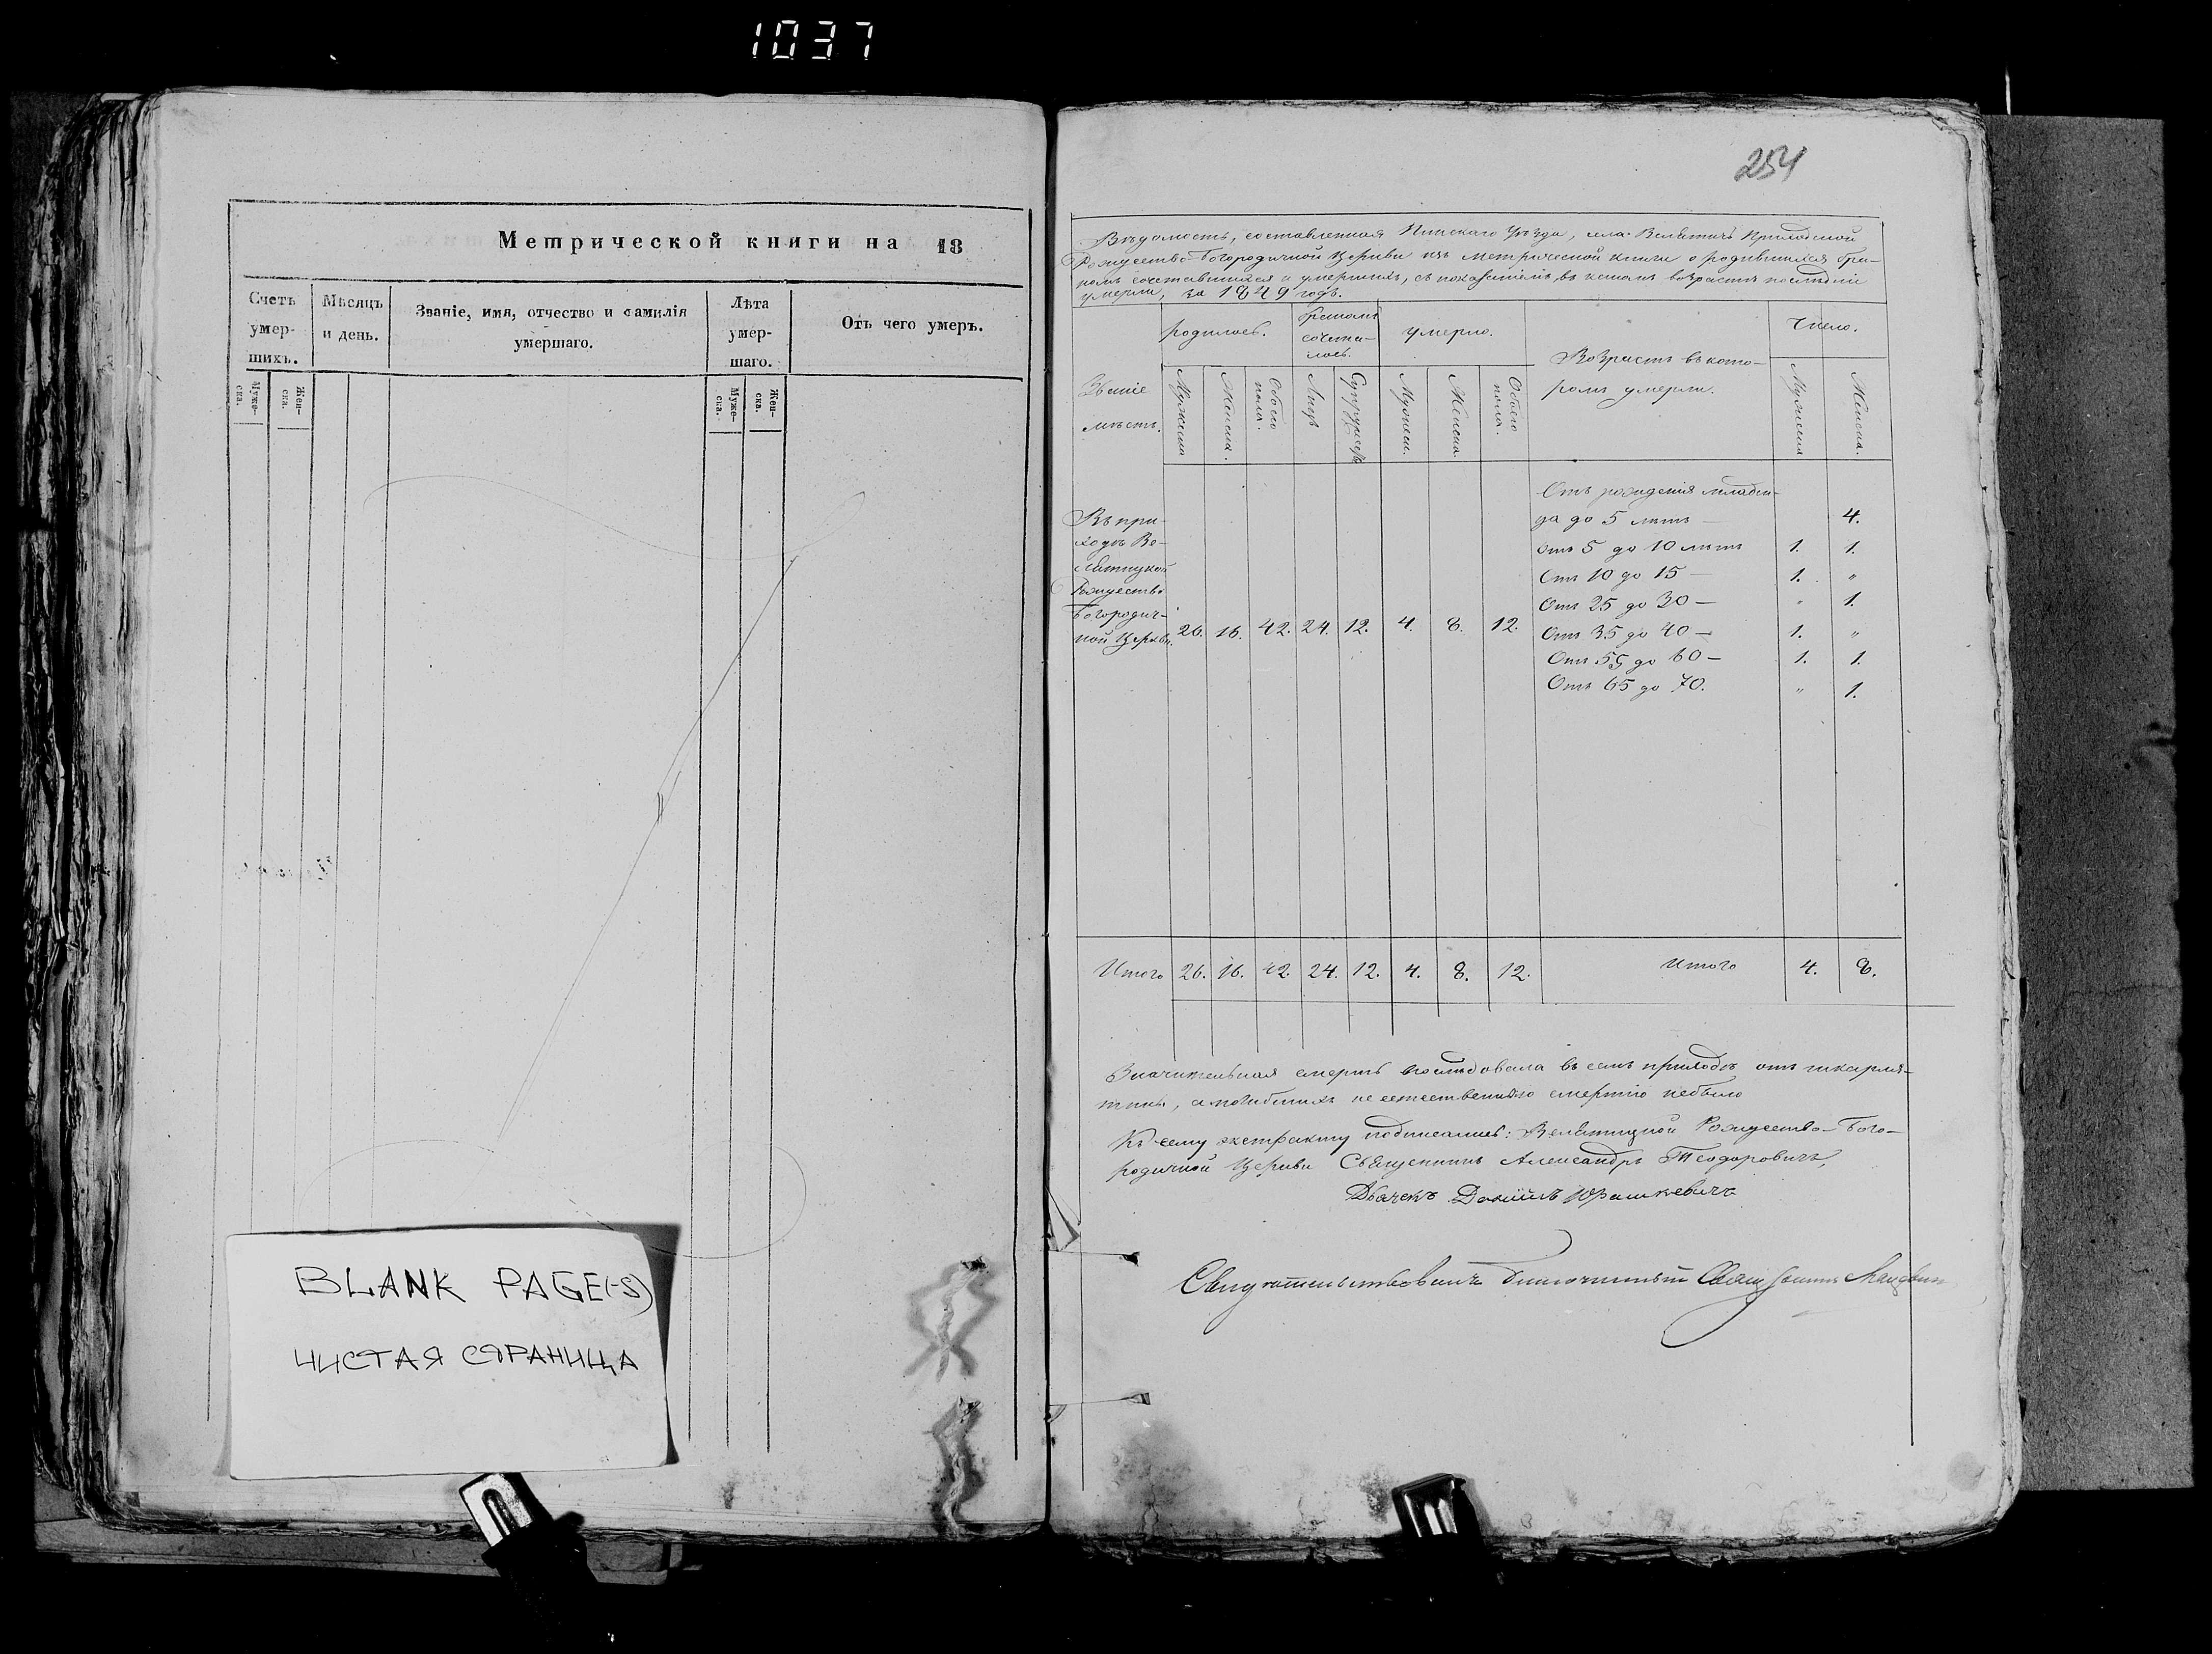 1037
Метрической книги на 18
Счетъ умер- шихъ.
Мѣсяцъ и день.
Званіе, имя, отчество и фамилія умершаго.
Лѣта умер- шаго.
Отъ чего умеръ.
Муже- ска.
Жен- ска.
Муже- ска.
Жен- ска.
BLANK PAGE(-S)
ЧИСТАЯ СТРАНИЦА
254
Вѣдомость, составленная Пинскаго Уѣзда, села Велятичъ Приходской
Рождество-Богородичной Церкви изъ метрической книги о родившихся бра-
комъ сочетавшихся и умершихъ, съ показаніемъ въ какомъ возрастѣ послѣдніе
умерли, за 1849 годъ.
Званіе мѣстъ.
родилось.
бракомъ сочета- лось.
умерло.
Возрастъ въ кото- ромъ умерли.
Число.
Мужеска
Женска.
Обоего пола.
Лицъ
Супружествъ
Мужеск.
Женска.
Обоего пола.
Мужеска
Женска.
Въ при-
ходѣ Ве-
лятицкой
Рождество
Богородич-
ной Церкви. 26. 16. 42. 24. 12. 4. 8. 12.
Отъ рожденія младен-
ца до 5 лѣтъ — 4.
Отъ 5 до 10 лѣтъ 1. 1.
Отъ 10 до 15 — 1. „
Отъ 25 до 30 — „ 1.
Отъ 35 до 40 — 1. „
Отъ 55 до 60 — 1. 1.
Отъ 65 до 70. „ 1.
Итого 26. 16. 42. 24. 12. 4. 8. 12. Итого 4. 8.
Значительная смерть послѣдовала въ семъ приходѣ отъ шкарля-
тины, а погибшихъ не естественною смертію небыло
Къ сему экстракту подписались: Велятицкой Рождество-Бого-
родичной Церкви Священникъ Александръ Теодоровичъ,
Дьячекъ Даніилъ Юрашкевичъ
Свидѣтельствовалъ Благочинный Свящ Іоаннъ